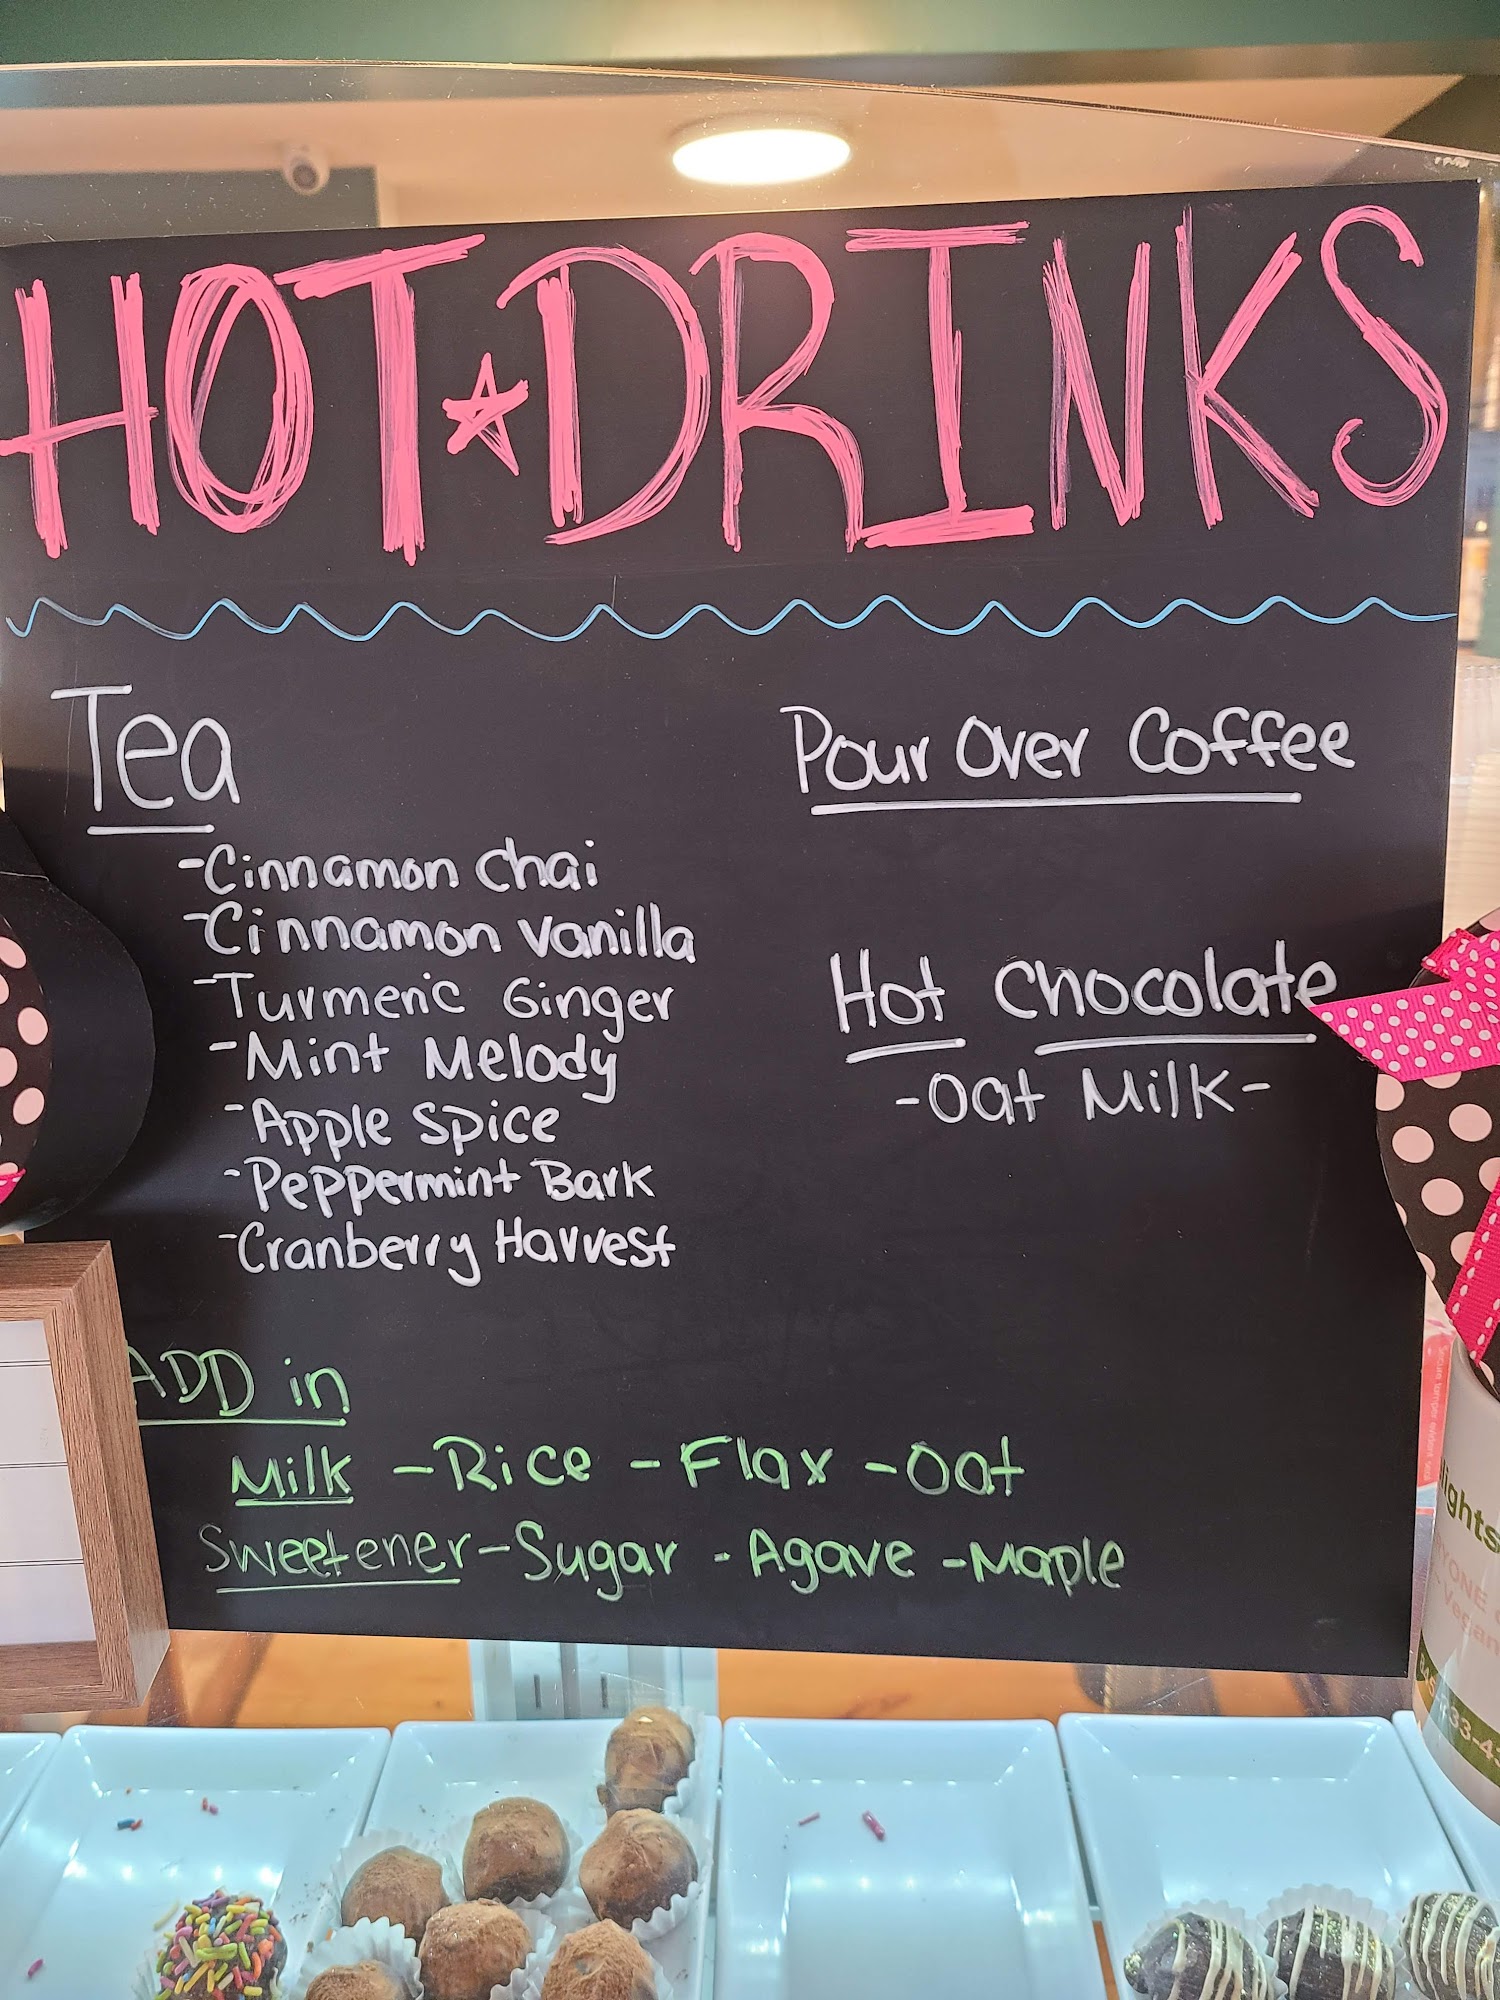 HOT☆DRINKS
Tea
-Cinnamon Chai
-Cinnamon Vanilla
-Turmeric Ginger
-Mint Melody
-Apple Spice
-Peppermint Bark
-Cranberry Harvest
Pour Over Coffee
Hot Chocolate
-Oat Milk-
ADD in
Milk -Rice -Flax -Oat
Sweetener-Sugar -Agave -Maple
lights
YONE
Vegan
33-4